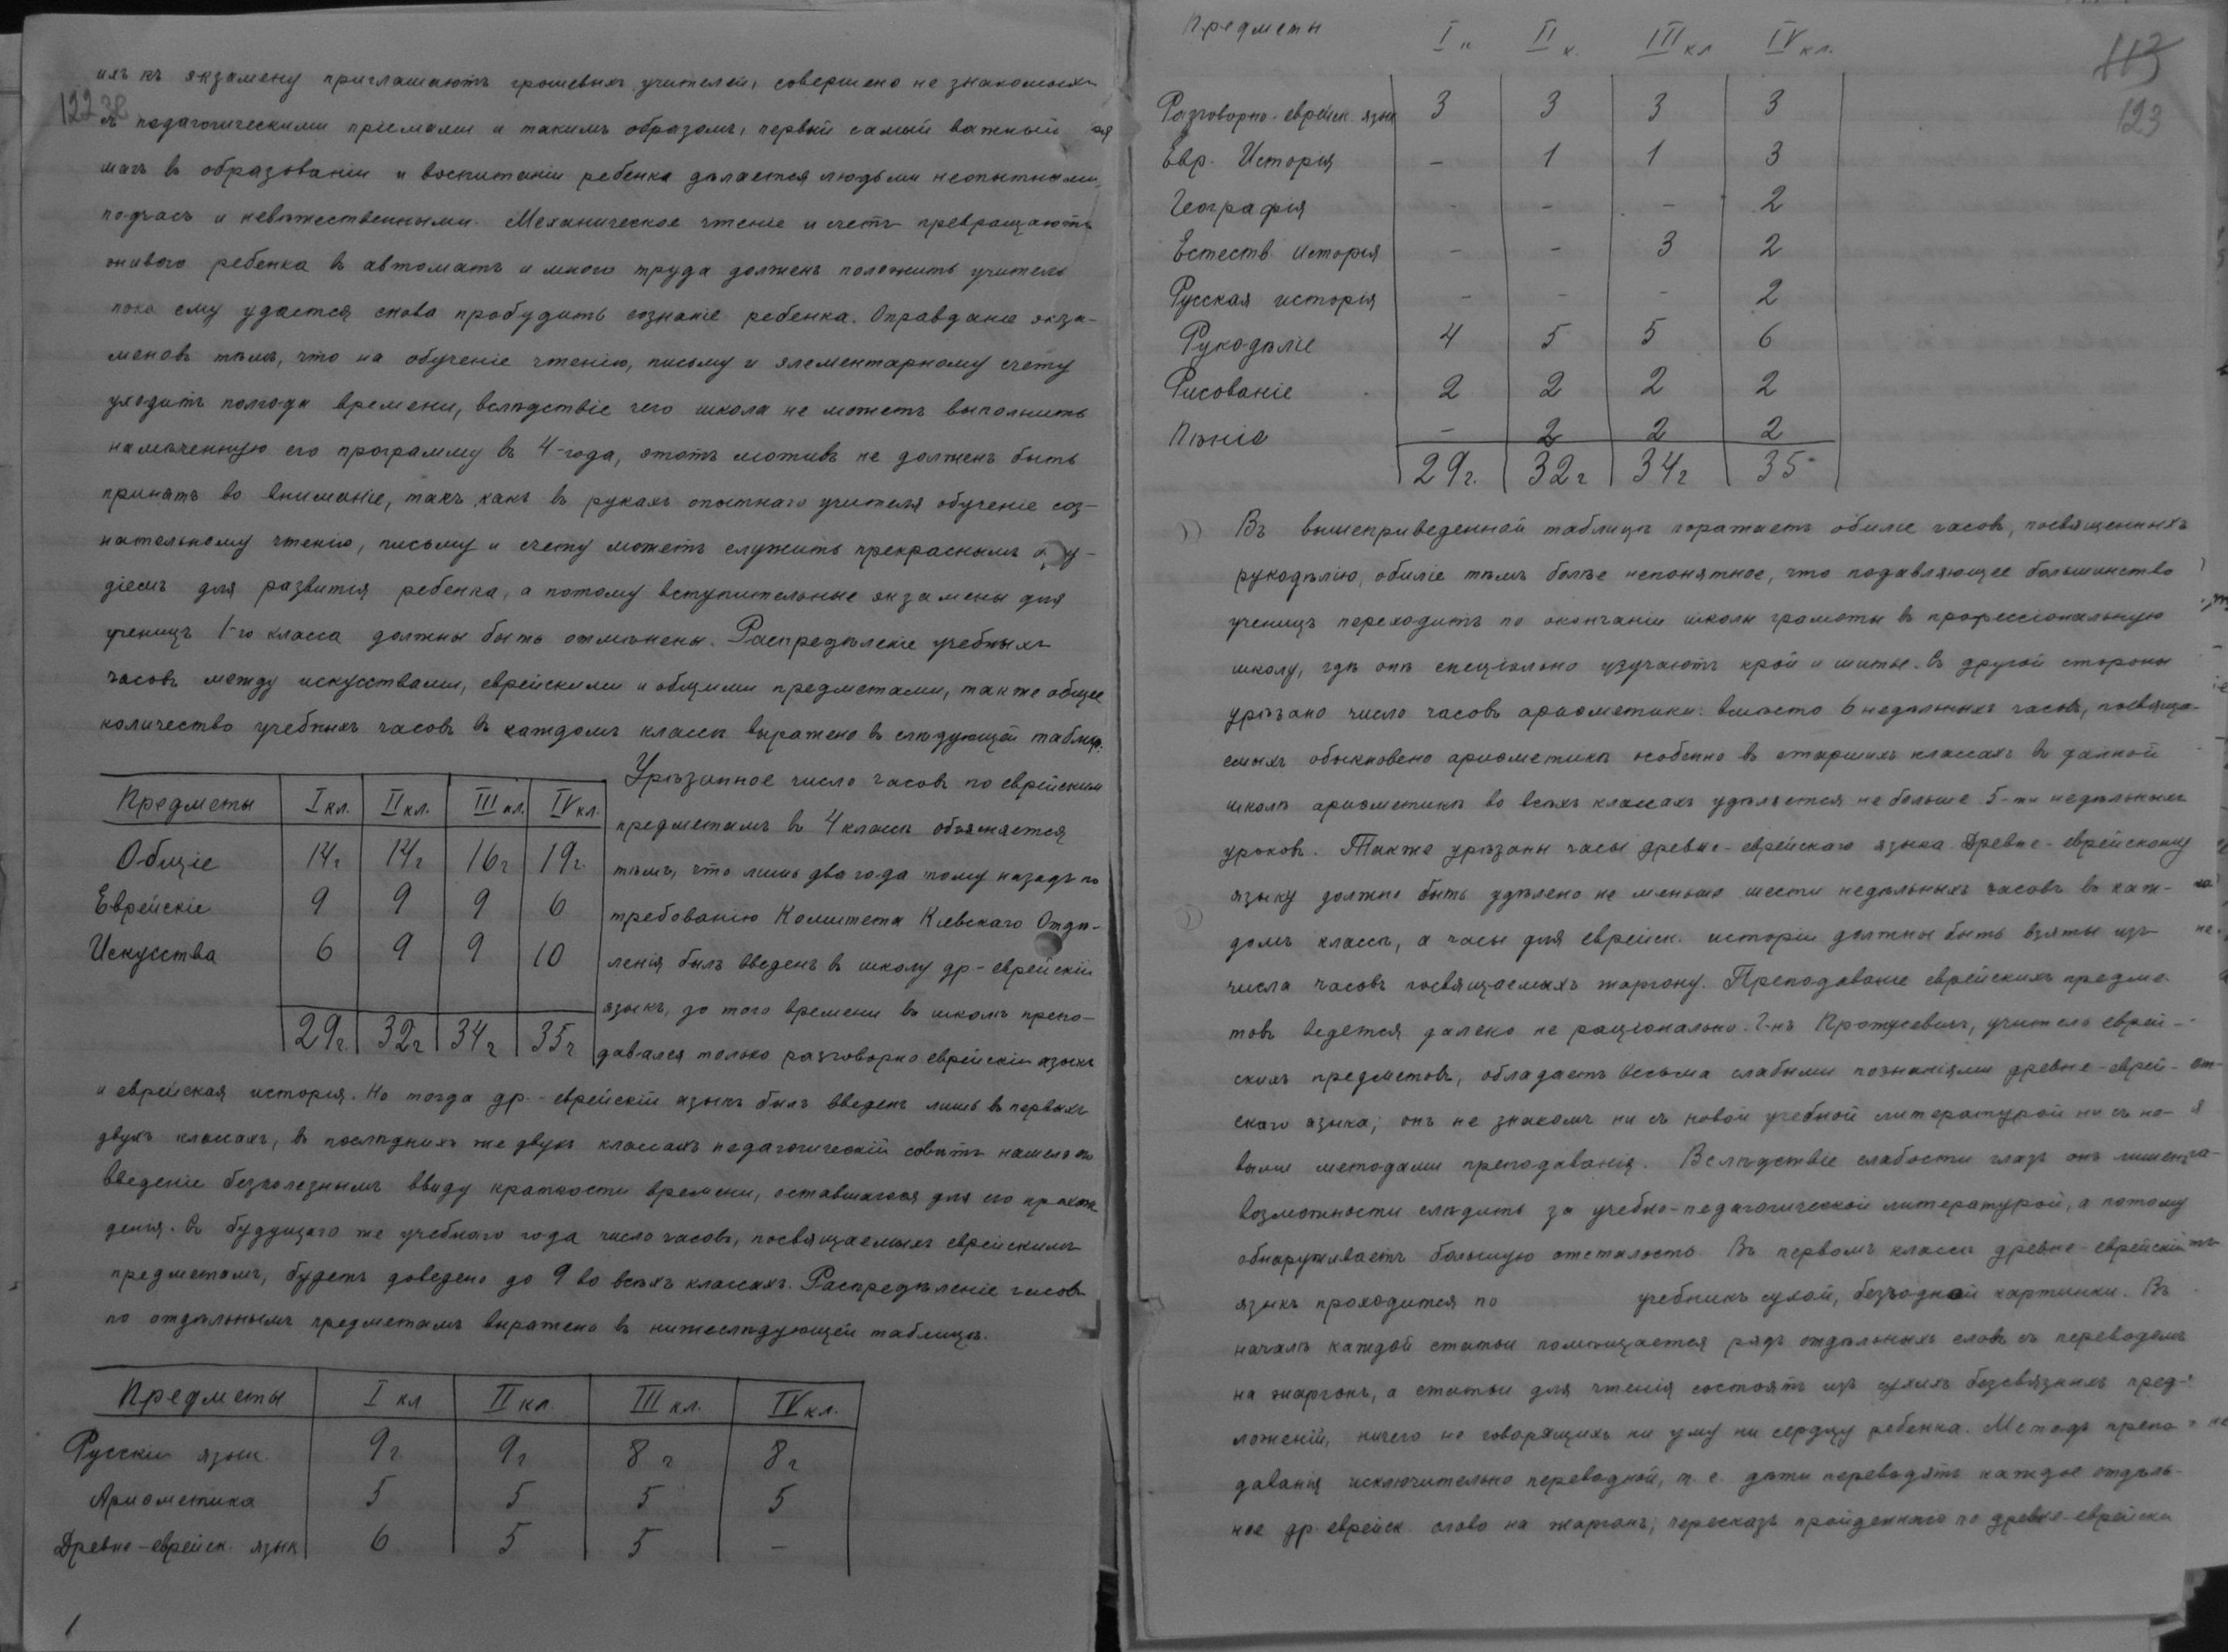 ихъ къ экзамену приглашаютъ грошевыхъ учителей, совершено не знакомыхъ
122 об
съ педагогическими пріемами и такимъ образомъ, первый самый важный
шагъ въ образованіи и воспитаніи ребенка дѣлается людьми неопытными,
подчасъ и невѣжественными. Механическое чтеніе и счетъ превращаютъ
живого ребенка въ автоматъ и много труда долженъ положить учитель
пока ему удастся снова пробудить сознаніе ребенка. Оправданіе экза-
меновъ тѣмъ, что на обученіе чтенію, письму и элементарному счету
уходитъ полгода времени, вслѣдствіе чего школа не можетъ выполнить
намѣченную его программу въ 4-года, этотъ мотивъ не долженъ быть
принятъ во вниманіе, такъ какъ въ рукахъ опытнаго учителя обученіе соз-
нательному чтенію, письму и счету можетъ служить прекраснымъ ору-
діемъ для развитія ребенка, а потому вступительные экзамены для
ученицъ 1-го класса должны быть отмѣнены. Распредѣленіе учебныхъ
часовъ между искусствами, еврейскими и общими предметами, также общее
количество учебныхъ часовъ въ каждомъ классѣ выражено въ слѣдующей таблицѣ:
Предметы I кл. II кл. III кл. IV кл.
Общіе 14 г 14 г 16 г 19 г.
Еврейскіе 9 9 9 6
Искусства 6 9 9 10
29 г. 32 г 34 г 35 г
Урѣзанное число часовъ по еврейскимъ
предметамъ въ 4 классѣ объясняется
тѣмъ, что лишь два года тому назадъ по
требованію Комитета Кіевскаго Отдѣ-
ленія былъ введенъ въ школу др-еврейскій
языкъ, до того времени въ школѣ препо-
давался только разговорно еврейскій языкъ
и еврейская исторія. Но тогда др.-еврейскій языкъ былъ введенъ лишь въ первыхъ
двухъ классахъ, въ послѣднихъ же двухъ классахъ педагогическій совѣтъ нашелъ его
введеніе безполезнымъ ввиду краткости времени, оставшагося для его прохож
денія. Съ будущаго же учебнаго года число часовъ, посвящаемыхъ еврейскимъ
предметамъ, будетъ доведено до 9 во всѣхъ классахъ. Распредѣленіе часовъ
по отдѣльнымъ предметамъ выражено въ нижеслѣдующей таблицѣ.
Предметы I кл II кл. III кл. IV кл.
Русскій языкъ 9 г 9 г 8 г 8 г
Ариѳметика 5 5 5 5
Древне-еврейск. язык 6 5 5 -
Предметы I к II к. III кл IV кл.
113
123
Разговорно-еврейск. язык 3 3 3 3
Евр. Исторія - 1 1 3
Географія - - - 2
Естеств. исторія - - 3 2
Русская исторія - - - 2
Рукодѣліе 4 5 5 6
Рисованіе 2 2 2 2
Пѣніе - 2 2 2
29 г. 32 г 34 г 35
Въ вышеприведенной таблицѣ поражаетъ обиліе часовъ, посвященныхъ
рукодѣлію, обиліе тѣмъ болѣе непонятное, что подавляющее большинство
ученицъ переходитъ по окончаніи школы грамоты въ профессіональную
школу, гдѣ онѣ спеціально изучаютъ крой и шитье. Съ другой стороны
урѣзано число часовъ ариѳметики: вмѣсто 6 недѣльныхъ часовъ, посвяща-
емыхъ обыкновено ариѳметикѣ особенно въ старшихъ классахъ въ данной
школѣ ариѳметикѣ во всѣхъ классахъ удѣляется не больше 5-ти недѣльныхъ
уроковъ. Также урѣзаны часы древне-еврейскаго языка. Древне-еврейскому
языку должно быть удѣлено не меньше шести недѣльныхъ часовъ въ каж-
домъ классѣ, а часы для еврейск. исторіи должны быть взяты изъ
числа часовъ посвящаемыхъ жаргону. Преподаваніе еврейскихъ предме
товъ ведется далеко не раціонально. Г-нъ Протусевичъ, учитель еврей-
скихъ предметовъ, обладаетъ весьма слабыми познаніями древне-еврей-
скаго языка; онъ не знакомъ ни съ новой учебной литературой ни съ но-
выми методами преподаванія. Вслѣдствіе слабости глазъ онъ лишенъ
возможности слѣдить за учебно-педагогической литературой, а потому
обнаруживаетъ большую отсталость. Въ первомъ классѣ древне-еврейскій
языкъ проходится по учебникъ сухой, безъ одной картинки. Въ
началѣ каждой статьи помѣщается рядъ отдѣльныхъ словъ съ переводомъ
на жаргонъ, а статьи для чтенія состоятъ изъ сухихъ безсвязныхъ пред-
ложеній, ничего не говорящихъ ни уму ни сердцу ребенка. Методъ препо
даванія исключительно переводной, т. е. дѣти переводятъ каждое отдѣль-
ное др. еврейск. слово на жаргонъ; пересказъ пройденнаго по древне-еврейски